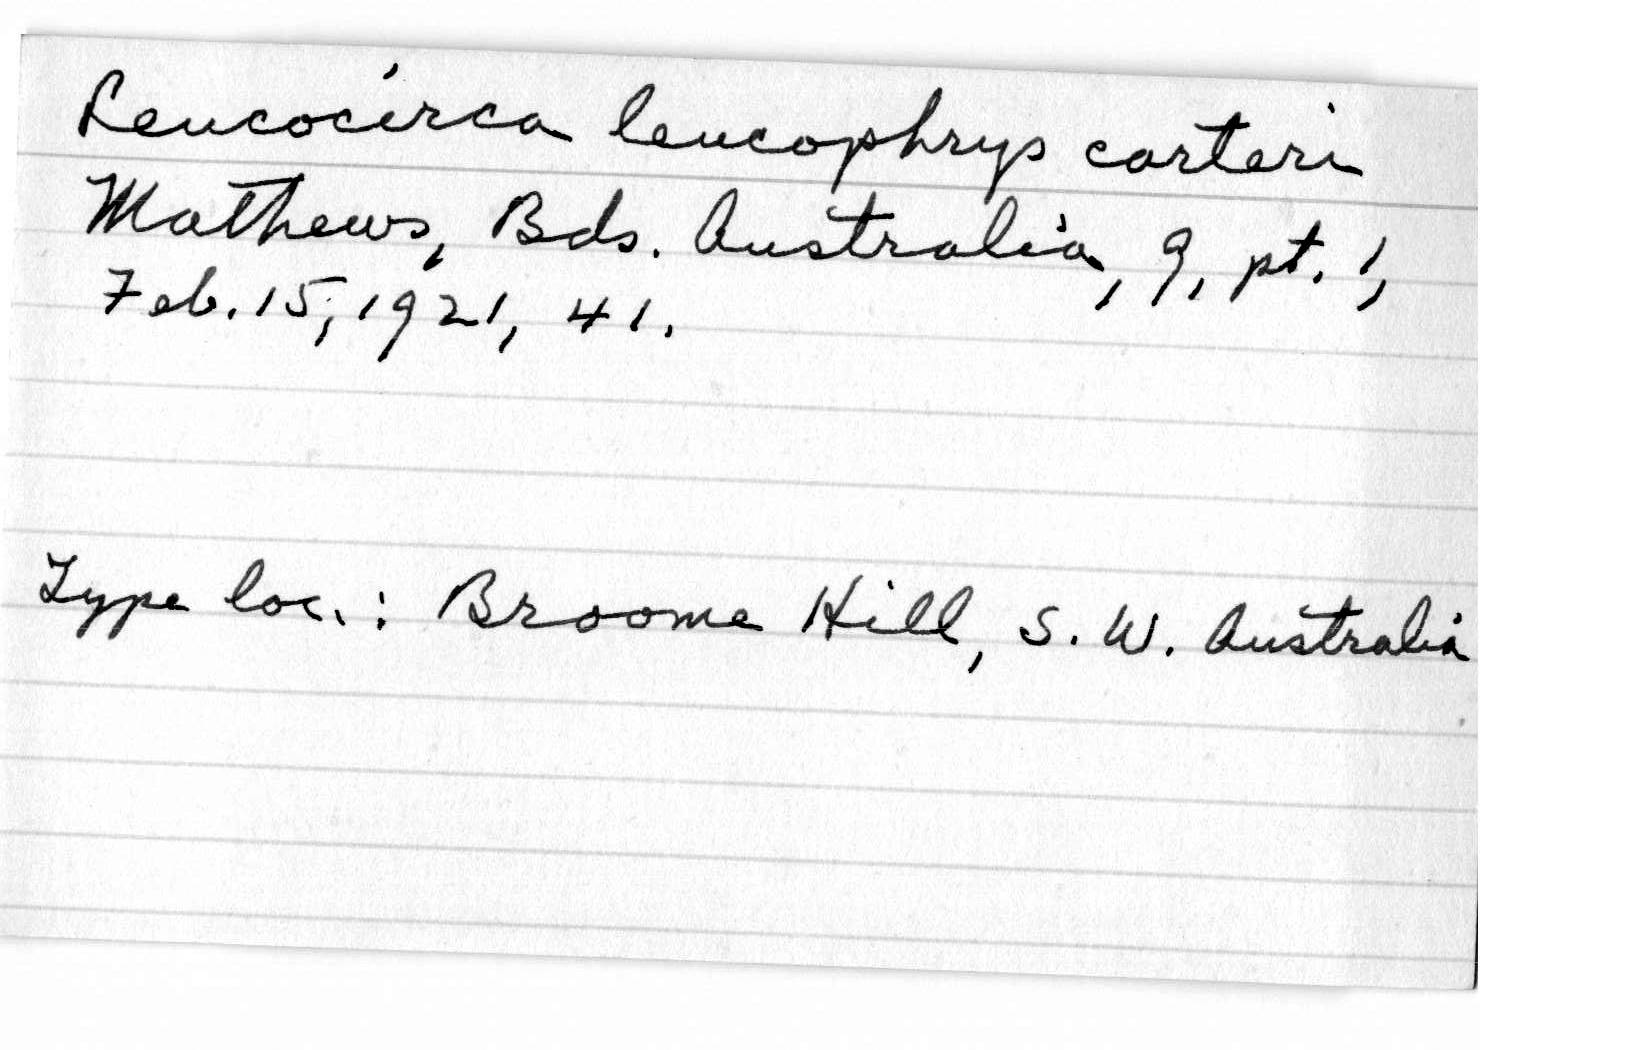 Leucocirca leucophrys carteri
Mathews, Bds. Australia, 9, pt. 1,
Feb. 15, 1921, 41.
Type loc.: Broome Hill, S. W. Australia